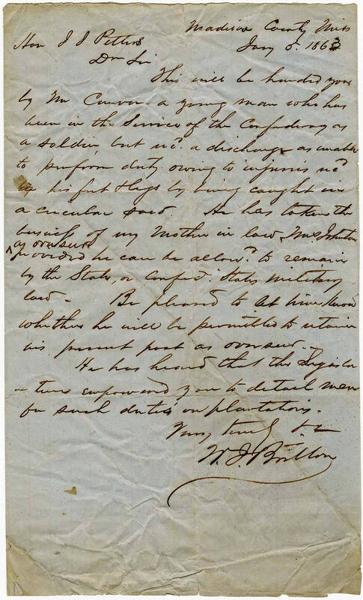 Madison County, Miss
Jany 5. 1863
Hon J J Pettus
Dr Sir
This will be handed you
by Mr a young man who has
been in the Service of the Confederacy as
a soldier but recd. a discharge as unable
to perform duty owing to injuries recd.
his feet & legs by being caught in
a circular saw. He has taken the
business of my Mother in law Mrs
as overseer
provided he can be allowd. to remain
by the State, or Confed. States military
law. Be pleased to let him know
whether he will be permitted to retain
his present post as overseer.
He has heard that the Legisla-
ture empowered you to detail men
for such duties on plantations.
Very truly &c
W. J. Britton